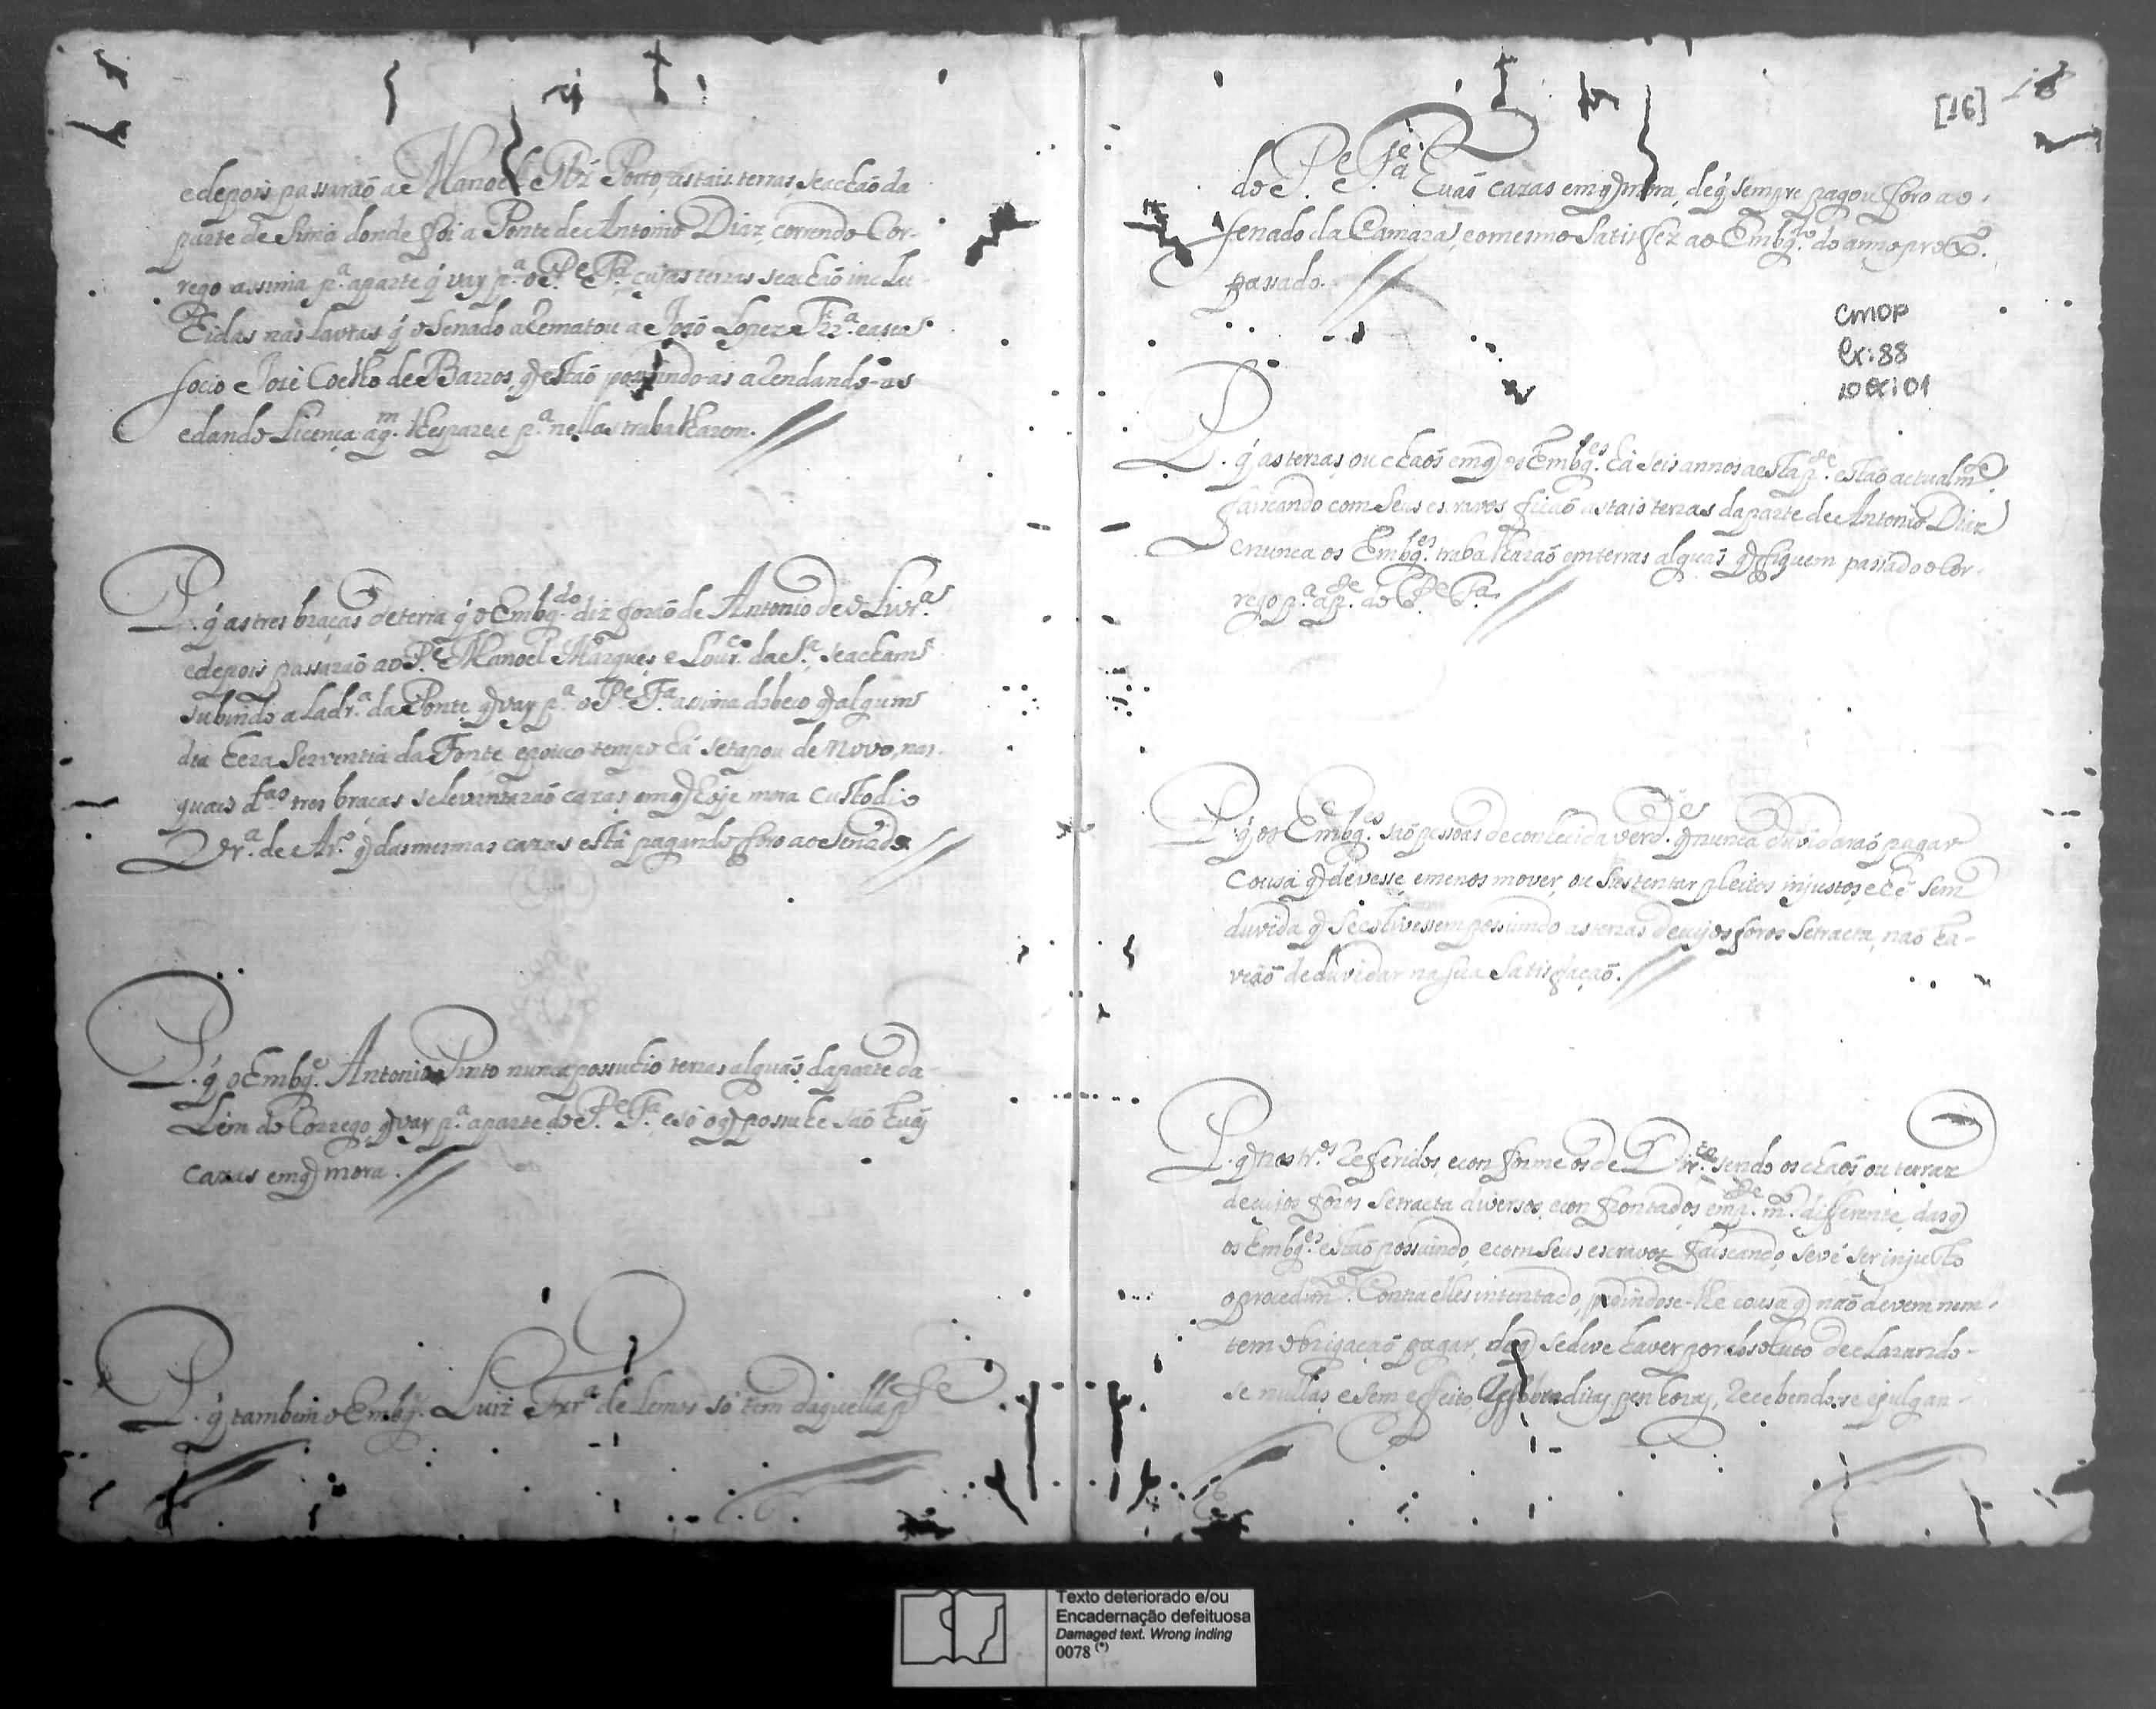 e depois passarão a Manoel Roiz Porto, as tais terras, se achão da
parte de sima donde foi a Ponte de Antonio Diaz, correndo Cor-
rego assima p.ª a parte q̃ vay p.ª o P.e F.a cujas terras se achão inclu-
hidas nas Lavras q̃ o Senado aRematou a João Lopez e a seo
socio Jozê Coelho de Barros, q̃ estão possuindo-as aRendando-as
e dando Licença a q.m lhes parece p.ª nellas trabalharem.
P. q̃ as tres braças de terra q̃ o Embg.do diz forão de Antonio de oLivr.ª
e depois passarão ao P.e Manoel Marques e Lour.co da S.ª se acham
subindo a Ladr.ª da Ponte q̃ vay p.ª o P.e F.a assima do beco q̃ algum
dia hera Serventia da Fonte, e pouco tempo há se tapou de Novo, nas
quais d.tas tres braças se levantarão cazas em q̃ hoje mora Custodio
de Ar.º q̃ das mesmas cazas está pagando foro ao Senado
P. q̃ o Embg.e Antonio Pinto nunca possuhio terras alguãs da parte da-
Lem do Corrego q̃ vay p.ª a parte do P.e F.a e só o q̃ possuhe são huãs
cazas em q̃ mora.
P. q̃ tambem o Embg.e Luiz de Lemos só tem daquella p.te
[16]
do P.e F.a huãs cazas em q̃ mora, de q̃ sempre pagou foro ao
senado da Camara, e o mesmo Satisfez ao Embg.do do anno prox.º
passado.
CMOP
Cx: 88
10 Cx: 01
P. q̃ as terras, ou chaõs em q̃ os Embg.es há seis annos a esta p.te estão actualm.te
faiscando com Seus escravos ficão as tais terras da parte de Antonio Diaz
e nunca os Embg.es trabalharão em terras alguãs q̃ fiquem passado o Cor-
rego p.ª a p.te do P.e F.a
P. q̃ os Embg.es são pessoas de conhecida verd.e q̃ nunca duvidarão pagar
Cousa q̃ devesse, e menos mover, ou Sustentar pleitos injustos, e hé sem
duvida q̃ Se estivessem possuindo as terras de cujos foros Se tracta, não ha-
vião de duvidar na sua Satisfação.
P. q̃ nos tr.os Referidos, e conforme os de Dir.to sendo os chaõs, ou terras
de cujos foros Se tracta diversos, e confrontados em p.te m.to differente, das q̃
os Embg.es estão possuindo, e com Seus escravos faiscando, se vê ser injusto
o procedim.to Contra elles intentado, pedindose-lhe cousa q̃ não devem nem
tem obrigação pagar, do q̃ se deve haver por absoluto declarando-
se nullas, e sem effeito, as sobreditas penhoras, Recebendo-se e julgan-
Texto deteriorado e/ou
Encadernação defeituosa
Damaged text. Wrong inding
0078 (*)